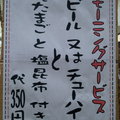 モーニングサービス
ビール 又は チューハイ
と
たまごと 塩昆布 付き
代 350円